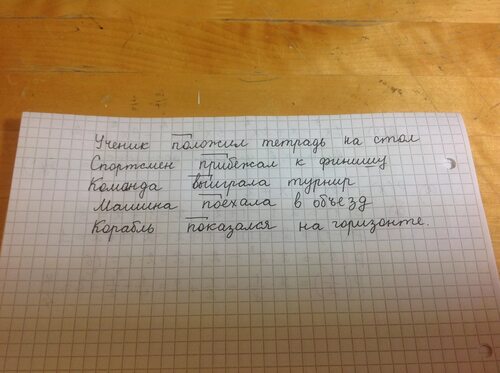 Ученик положил тетрадь на стол
Спортсмен прибежал к финишу
Команда выиграла турнир
Машина поехала в объезд
Корабль показался на горизонте.